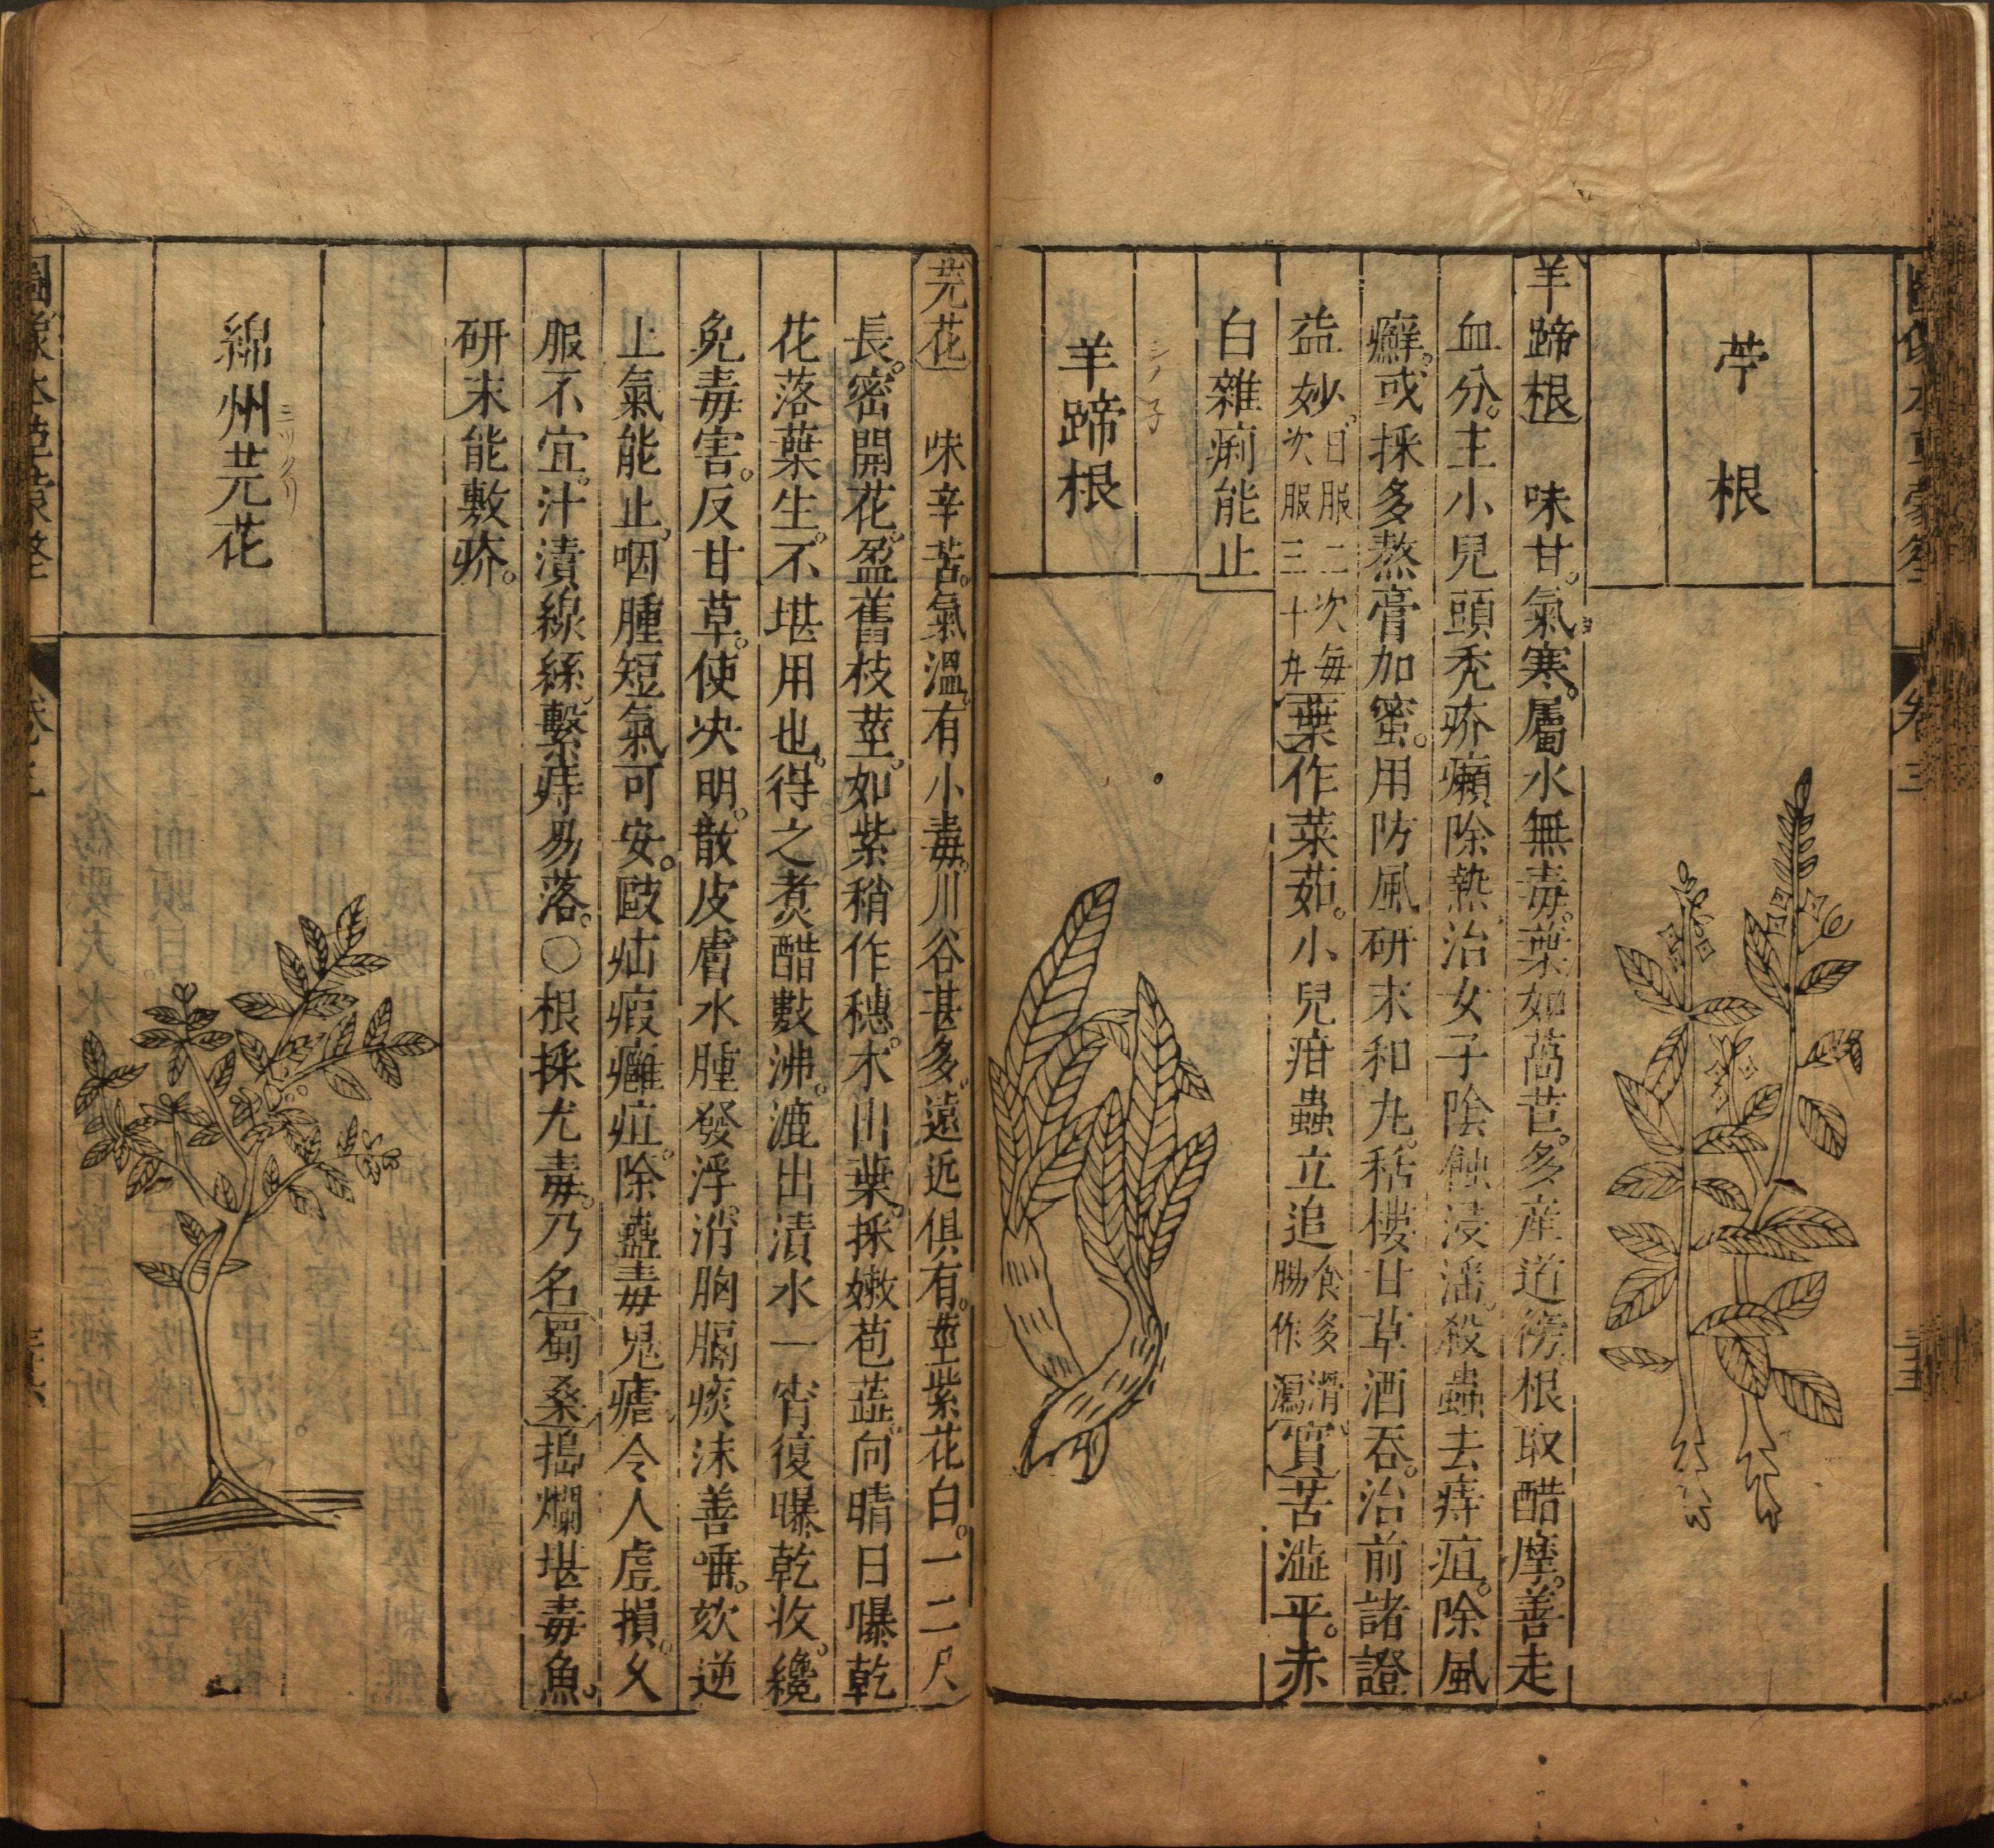 苧根
羊蹄根 味甘。氣寒。屬水無毒。葉如萵苣。多產道傍。根取醋摩。善走
血分。主小兒頭禿疥癩。除熱。治女子陰蝕浸淫。殺蟲去痔疽。除風
癬。或採多熬膏加蜜。用防風研末和丸。栝樓甘草酒吞。治前諸證
益妙。日服二次每次服三十丸葉作菜茹。小兒疳蟲立追食多滑腸作瀉實苦澁平。赤
白雜痢能止
羊蹄根
シノ子
芫花 味辛苦。氣溫。有小毒。川谷甚多。遠近俱有。莖紫花白。一二尺
長。密開花。盈舊枝莖。如紫稍作穗。木出葉。採嫩苞蕋。向晴日曝乾
花落葉生。不堪用也。得之煑醋數沸。漉出漬水一宵。復曝乾收。纔
免毒害。反甘草。使决明。散皮膚水腫發浮。消胸膈痰沫善唾。欬逆
上氣能止。咽腫短氣可安。敺疝瘕癰疽。除蠱毒鬼瘧。令人虛損。久
服不宜。汁漬線絲。繫痔易落。○根採尤毒。乃名蜀桑搗爛堪毒魚。
研末能敷疥。
綿州芫花
卷三